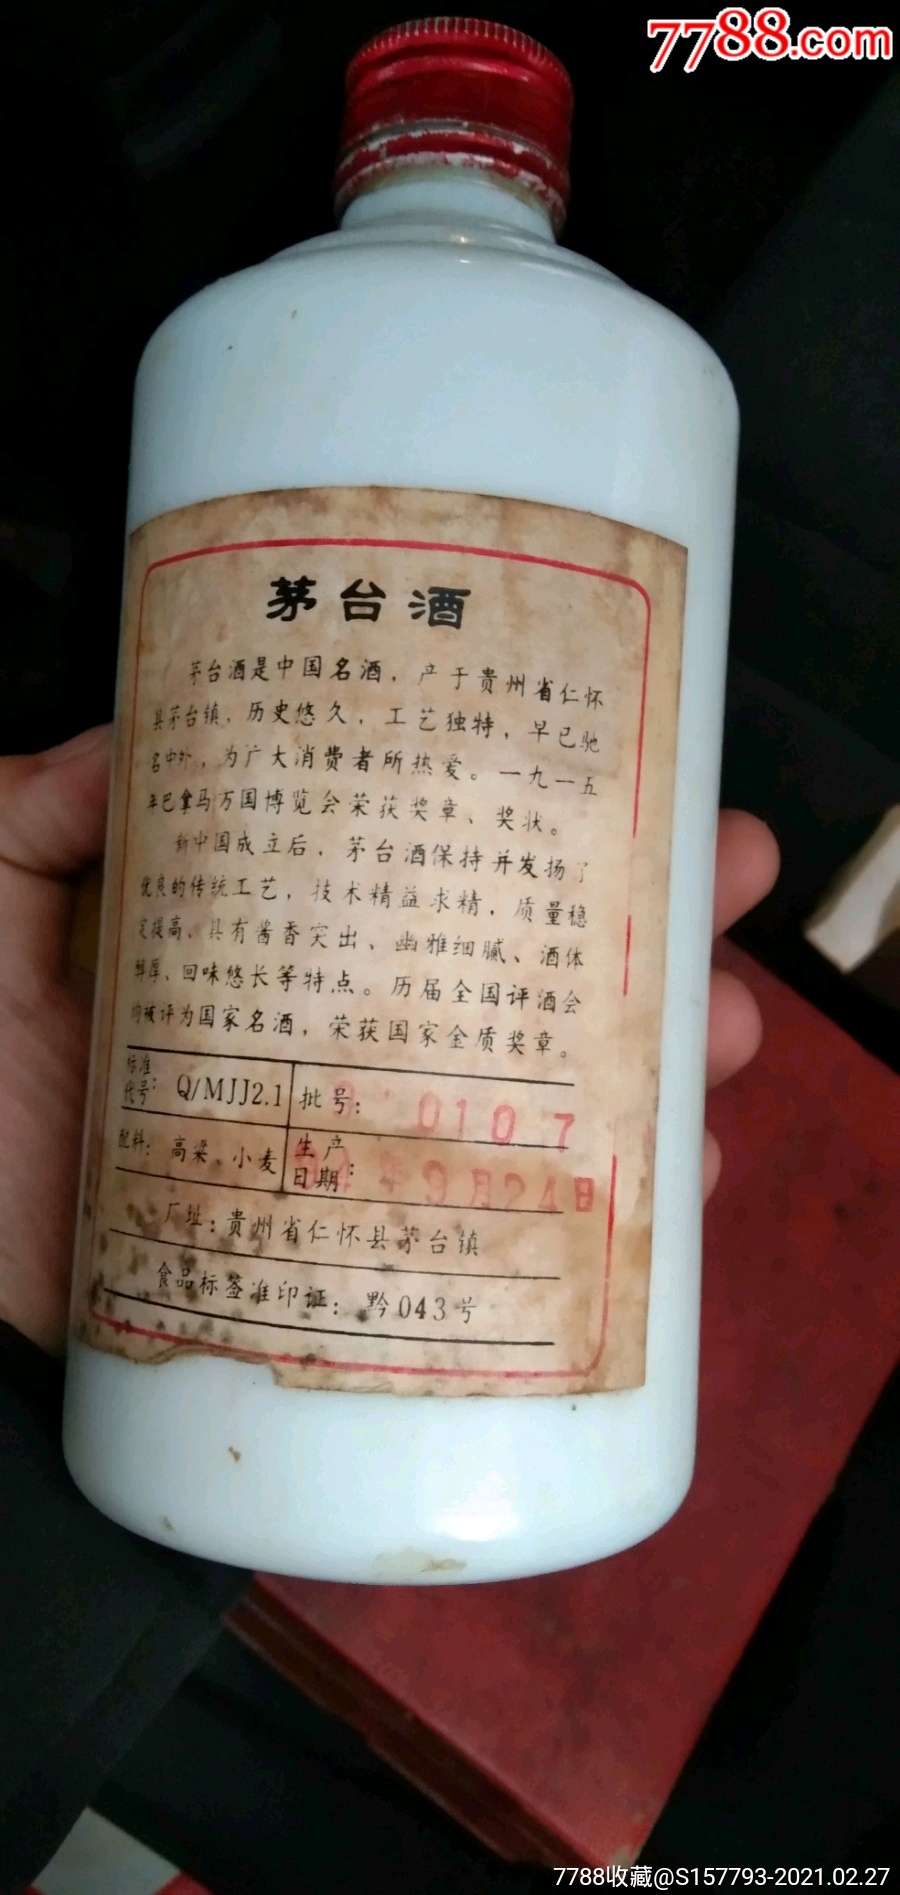 7788.com
茅台酒
茅台酒是中国名酒，产于贵州省仁怀
县茅台镇，历史悠久，工艺独特，早已驰
名中外，为广大消费者所热爱。一九一五
年巴拿马万国博览会荣获奖章、奖状。
新中国成立后，茅台酒保持并发扬了
优良的传统工艺，技术精益求精，质量稳
定提高，具有酱香突出、幽雅细腻、酒体
醇厚、回味悠长等特点。历届全国评酒会
均被评为国家名酒，荣获国家金质奖章。
标准代号：Q/MJJ2.1 批号：0107
配料：高粱、小麦 生产日期：9月24日
厂址：贵州省仁怀县茅台镇
食品标签准印证：黔043号
7788收藏@S157793-2021.02.27